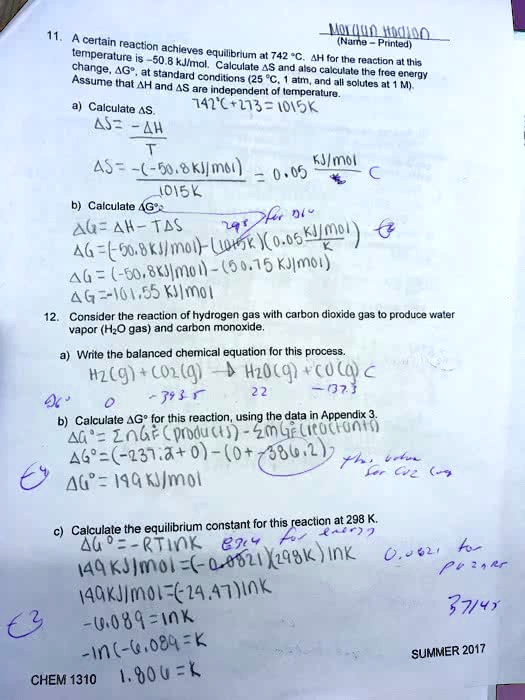 Morgan Hodson
(Name – Printed)
11. A certain reaction achieves equilibrium at 742 °C. ΔH for the reaction at this
temperature is –50.8 kJ/mol. Calculate ΔS and also calculate the free energy
change, ΔG°, at standard conditions (25 °C, 1 atm, and all solutes at 1 M).
Assume that ΔH and ΔS are independent of temperature.
742°C+273=1015K
a) Calculate ΔS.
ΔS= -ΔH
T
ΔS= -(-50.8KJ/mol) = 0.05 KJ/mol C
1015K
b) Calculate ΔG°.
ΔG= ΔH- TΔS 298 for ΔG°
ΔG=(-50.8KJ/mol)-(1015K)(0.05 KJ/mol)
K
ΔG= (-50.8KJ/mol)-(50.75 KJ/mol)
ΔG=-101.55 KJ/mol
12. Consider the reaction of hydrogen gas with carbon dioxide gas to produce water
vapor (H₂O gas) and carbon monoxide.
a) Write the balanced chemical equation for this process.
H2(g) + CO2(g) → H2O(g) + CO(g) C
ΔG° 0 -393.5 22 -137.3
b) Calculate ΔG° for this reaction, using the data in Appendix 3.
ΔG°= ΣnGf°(products)-ΣmGf°(reactants)
ΔG°=(-237.2+0)-(0+-386.2)
this value
for CO2 (aq)
ΔG°= 149 KJ/mol
c) Calculate the equilibrium constant for this reaction at 298 K.
ΔG°=-RTlnK 8.314 for energy
149KJ/mol=(-0.0821)(298K)lnK 0.0821 for
PV=nRT
149KJ/mol=(-24.47)lnK
-6.089=lnK
-ln(-6.089=K
1.806=K
CHEM 1310
SUMMER 2017